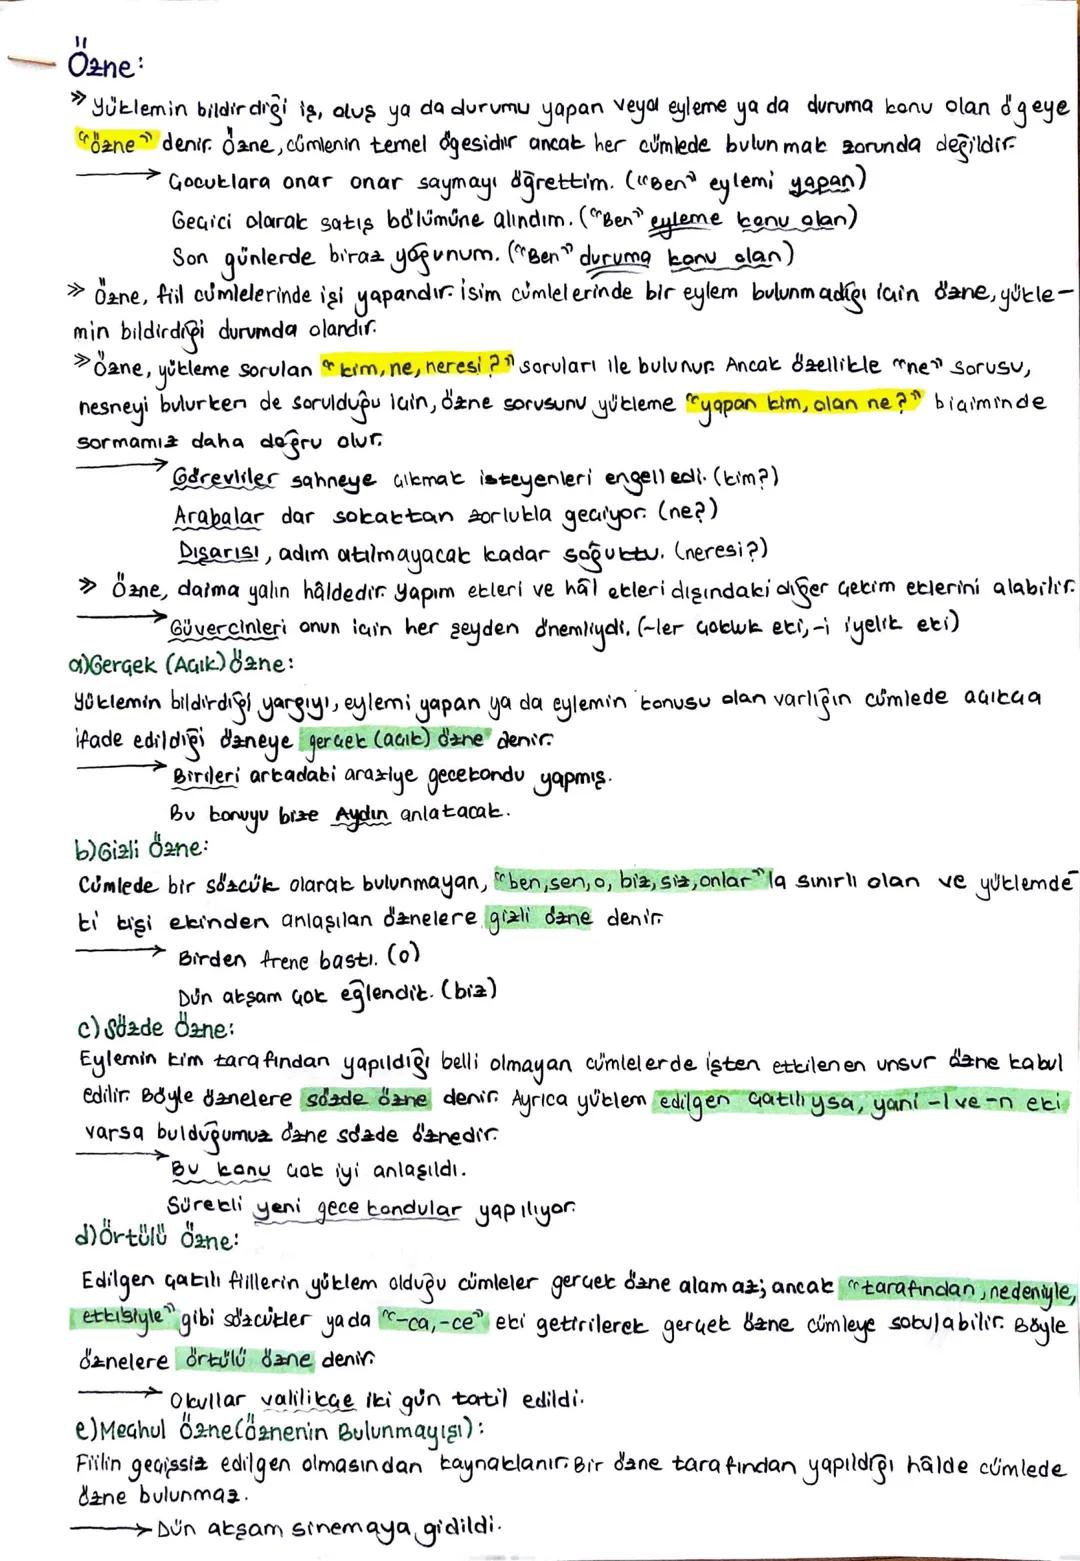 Özne:
» Yüklemin bildirdiği iş, oluş ya da durumu yapan veya eyleme ya da duruma konu olan ögeye
"özne" denir. Özne, cümlenin temel ögesidir ancak her cümlede bulunmak zorunda değildir.
→ Çocuklara onar onar saymayı öğrettim. ("Ben" eylemi yapan)
Geçici olarak satış bölümüne alındım. ("Ben" eyleme konu olan)
Son günlerde biraz yoğunum. ("Ben" duruma konu olan)
» Özne, fiil cümlelerinde işi yapandır. İsim cümlelerinde bir eylem bulunmadığı için özne, yükle-
min bildirdiği durumda olandır.
» Özne, yükleme sorulan "kim, ne, neresi?" soruları ile bulunur. Ancak özellikle "ne" sorusu,
nesneyi bulurken de sorulduğu için, özne sorusunu yükleme "yapan kim, olan ne?" biçiminde
sormamız daha doğru olur.
→ Görevliler sahneye çıkmak isteyenleri engelledi. (kim?)
Arabalar dar sokaktan zorlukla geçiyor. (ne?)
Dışarısı, adım atılmayacak kadar soğuktu. (neresi?)
» Özne, daima yalın hâldedir. Yapım ekleri ve hâl ekleri dışındaki diğer çekim eklerini alabilir.
→ Güvercinleri onun için her şeyden önemliydi. (-ler çokluk eki, -i iyelik eki)
a) Gerçek (Açık) Özne:
Yüklemin bildirdiği yargıyı, eylemi yapan ya da eylemin konusu olan varlığın cümlede açıkça
ifade edildiği özneye gerçek (açık) özne denir.
→ Birileri arkadaki araziye gecekondu yapmış.
Bu konuyu bize Aydın anlatacak.
b) Gizli Özne:
Cümlede bir sözcük olarak bulunmayan, "ben, sen, o, biz, siz, onlar"la sınırlı olan ve yüklemde
ki kişi ekinden anlaşılan öznelere gizli özne denir.
→ Birden frene bastı. (o)
Dün akşam çok eğlendik. (biz)
c) Sözde Özne:
Eylemin kim tarafından yapıldığı belli olmayan cümlelerde işten etkilenen unsur özne kabul
edilir. Böyle öznelere sözde özne denir. Ayrıca yüklem edilgen çatılıysa, yani -l ve -n eki
varsa bulduğumuz özne sözde öznedir.
→ Bu konu çok iyi anlaşıldı.
Sürekli yeni gece kondular yapılıyor.
d) Örtülü Özne:
Edilgen çatılı fiillerin yüklem olduğu cümleler gerçek özne alamaz; ancak "tarafından, nedeniyle,
etkisiyle" gibi sözcükler ya da "-ca, -ce" eki getirilerek gerçek özne cümleye sokulabilir. Böyle
öznelere örtülü özne denir.
→ Okullar valilikçe iki gün tatil edildi.
e) Meçhul Özne (Öznenin Bulunmayışı):
Fiilin geçişsiz edilgen olmasından kaynaklanır. Bir özne tarafından yapıldığı hâlde cümlede
özne bulunmaz.
→ Dün akşam sinemaya gidildi.